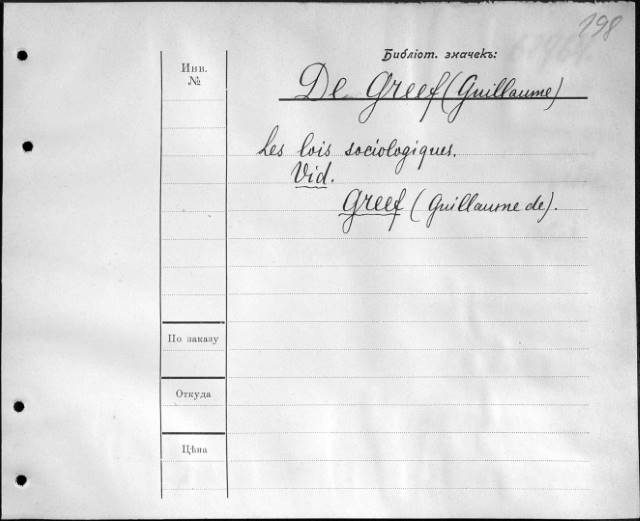 198
Библіот. значекъ:
Инв.
№
De Greef (Guillaume)
Les lois sociologiques.
Vid.
Greef (Guillaume de).
По заказу
Откуда
Цѣна